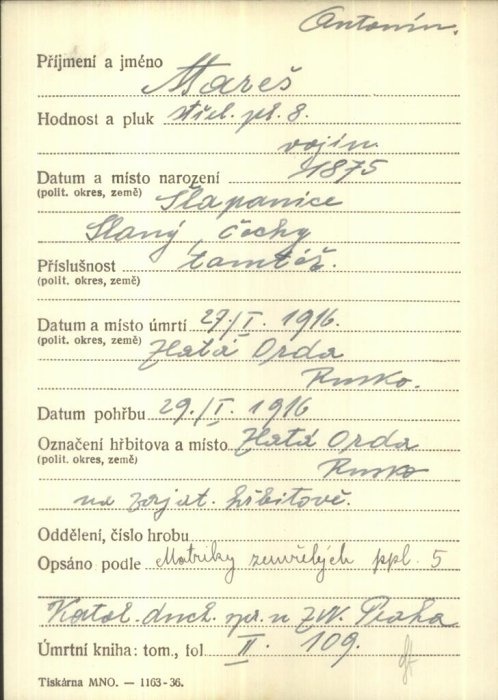 Antonín.
Příjmení a jméno Mareš
Hodnost a pluk střel. pl. 8.
vojín
Datum a místo narození 1875
(polit. okres, země) Šlapanice
Slaný, Čechy
Příslušnost tamtéž.
(polit. okres, země)
Datum a místo úmrtí 27./I. 1916.
(polit. okres, země) Zlatá Orda
Rusko.
Datum pohřbu 29./I. 1916
Označení hřbitova a místo Zlatá Orda
(polit. okres, země) Rusko
na zajat. hřbitově.
Oddělení, číslo hrobu
Opsáno podle Matriky zemřelých ppl. 5
Katol. duch. spr. u ZVV. Praha
Úmrtní kniha: tom., fol II. 109.
Tiskárna MNO. — 1163-36.